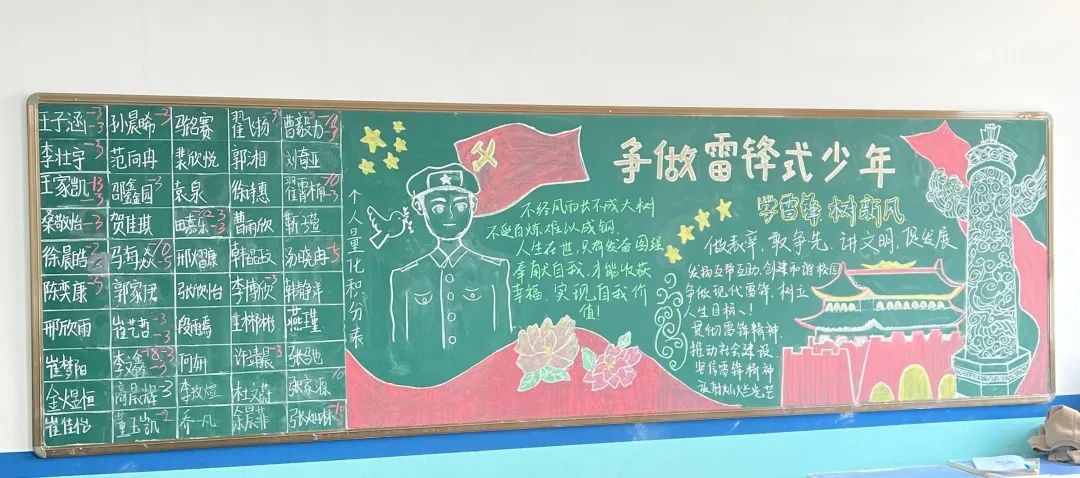 王子涵 -3 孙晨晞 -3 骆名赛 翟飞扬 -3 曹毅力
李壮宇 -3 范向冉 裴欣悦 郭湘 刘奇亚
王家凯 邵鑫园 -3 袁泉 徐梓惠
桑敬怡 -3 贺佳琪 -3 曹雨欣 靳子瑄
徐晨皓 邢熠康 汤晓冉
陈奕康 -5 郭家伊 张欣怡 李博欣 -3
邢欣雨 崔艺哲 王彬彬 燕瑾
崔梦阳 李鑫 许靖晨 -3 张弛
金煜恒 -3 李牧煊 杜文蔚 张家源
崔佳怡 董玉凯 乔一凡 徐晨菲
个人量化积分表
不经风雨长不成大树
不受百炼难以成钢
人生在世,只有发奋图强
奉献自我,才能收获
幸福,实现自我价
值!
争做雷锋式少年
学雷锋 树新风
做表率,敢争先,讲文明,促发展
发扬互帮互助,创建和谐校园
争做现代雷锋,树立
人生目标!
贯彻雷锋精神
推动社会建设
坚信雷锋精神
放射灿烂光芒